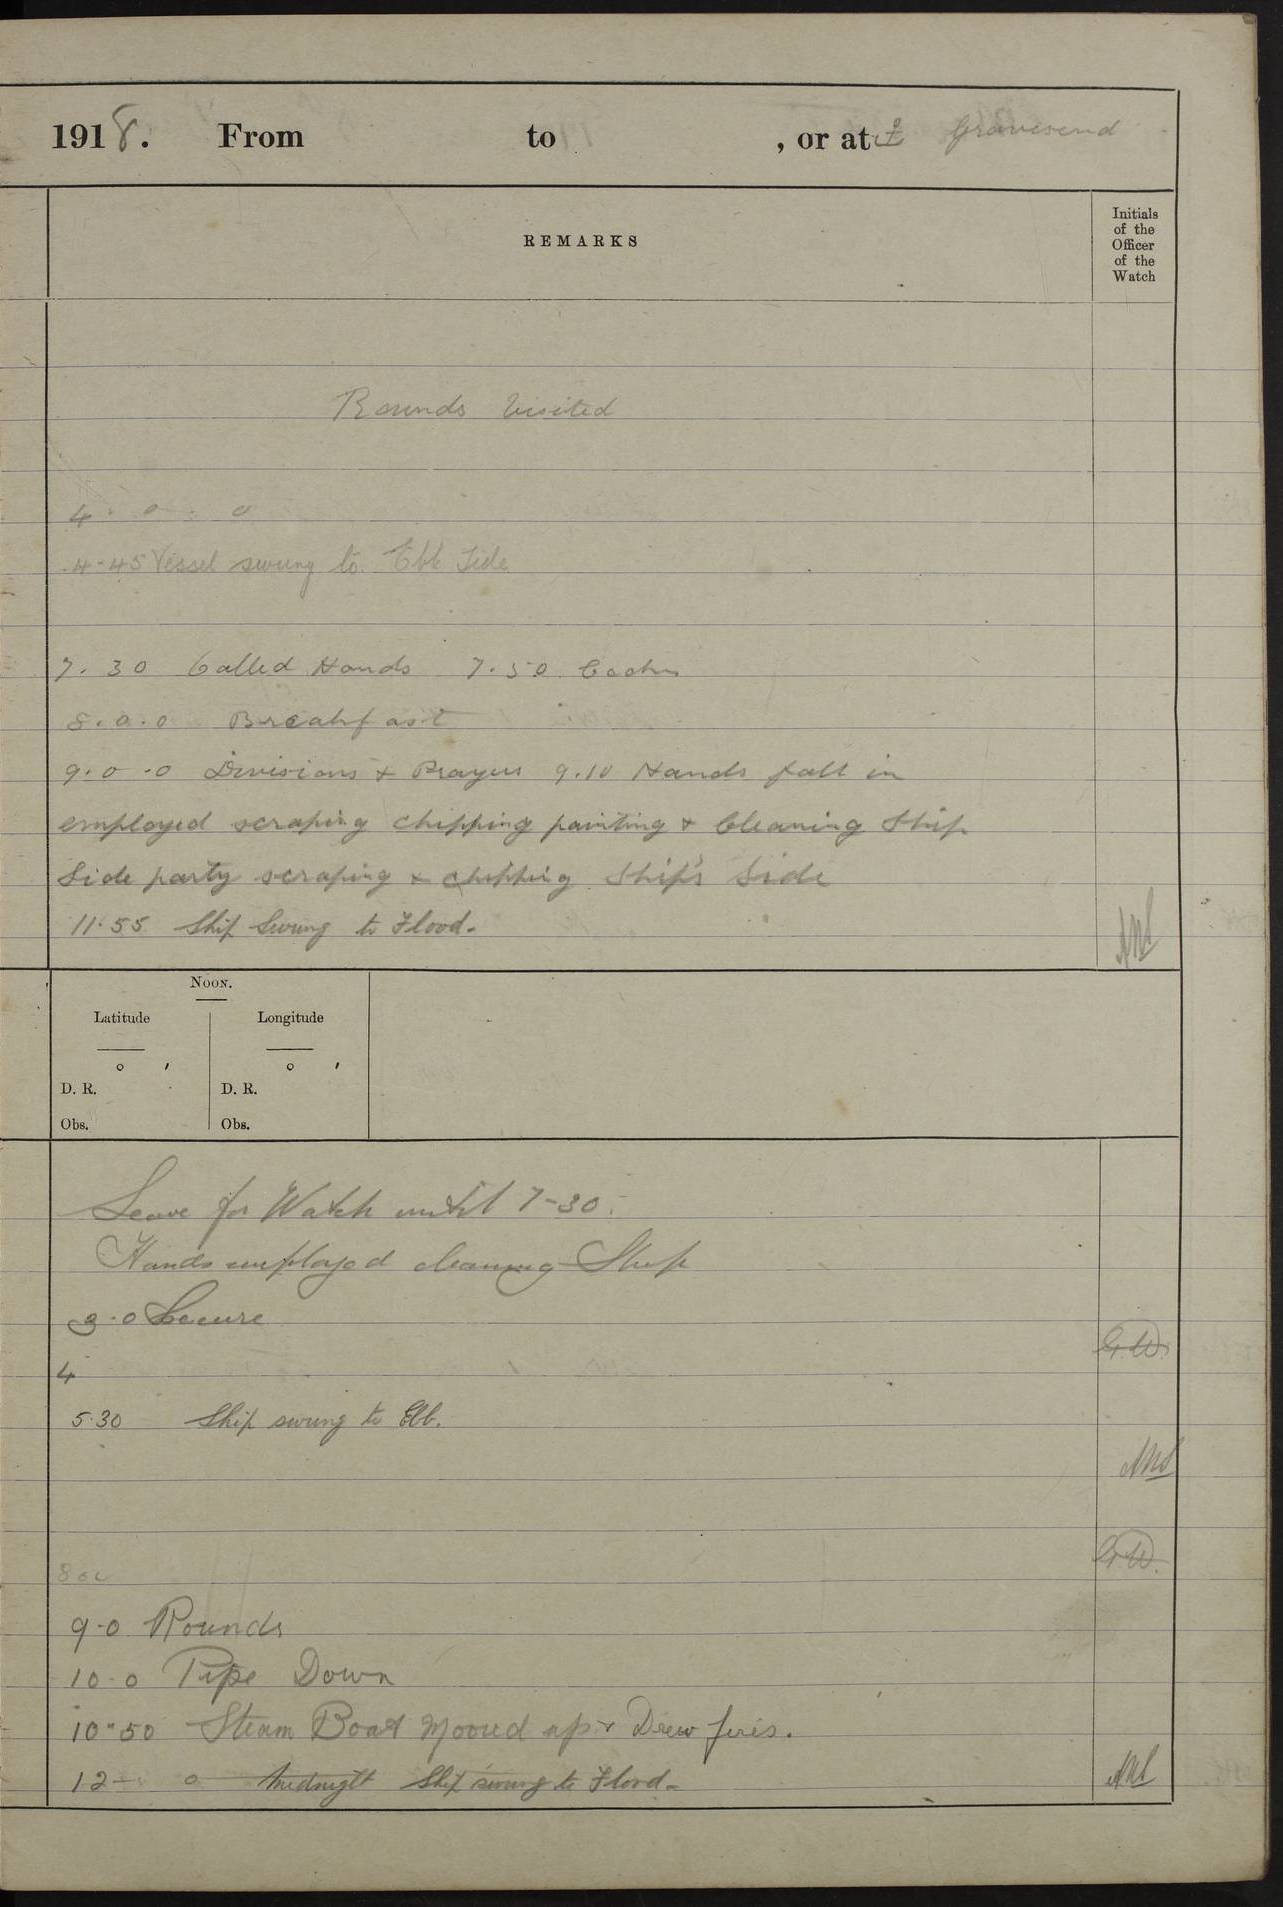 1918. From to , or at ⚓ Gravesend
REMARKS
Initials
of the
Officer
of the
Watch
Rounds Visited
4. 0. 0
4-45 Vessel swung to Ebb Tide
7. 30 Called Hands 7.50 Cooks
8. 0. 0 Breakfast
9. 0 .0 Divisions & Prayers 9.10 Hands fall in
employed scraping chipping painting & Cleaning Ship
Side party scraping & chipping Ship's Side
11.55 Ship Swung to Flood.
Noon.
Latitude Longitude
° ′ ° ′
D. R. D. R.
Obs. Obs.
Leave for Watch until 7-30.
Hands employed cleaning Ship
3.0 Secure
G.W.
4
5.30 Ship swung to Ebb.
G.W.
8
9-0 Rounds
10-0 Pipe Down
10-50 Steam Boat Moored up & Drew fires.
12- 0 Midnight Ship swung to Flood-